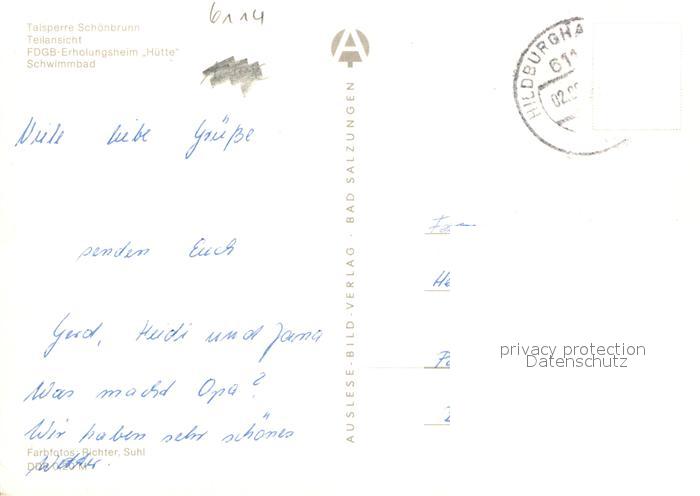 6114
Talsperre Schönbrunn
Teilansicht
FDGB-Erholungsheim „Hütte"
Schwimmbad
HILDBURGHA
611
02.
Viele liebe Grüße
senden Euch
Gerd, Heidi und Jana
Was macht Opa?
Wir haben sehr schönes
Wetter.
Farbfotos: Richter, Suhl
AUSLESE-BILD-VERLAG · BAD SALZUNGEN
Fam
He
privacy protection
Datenschutz